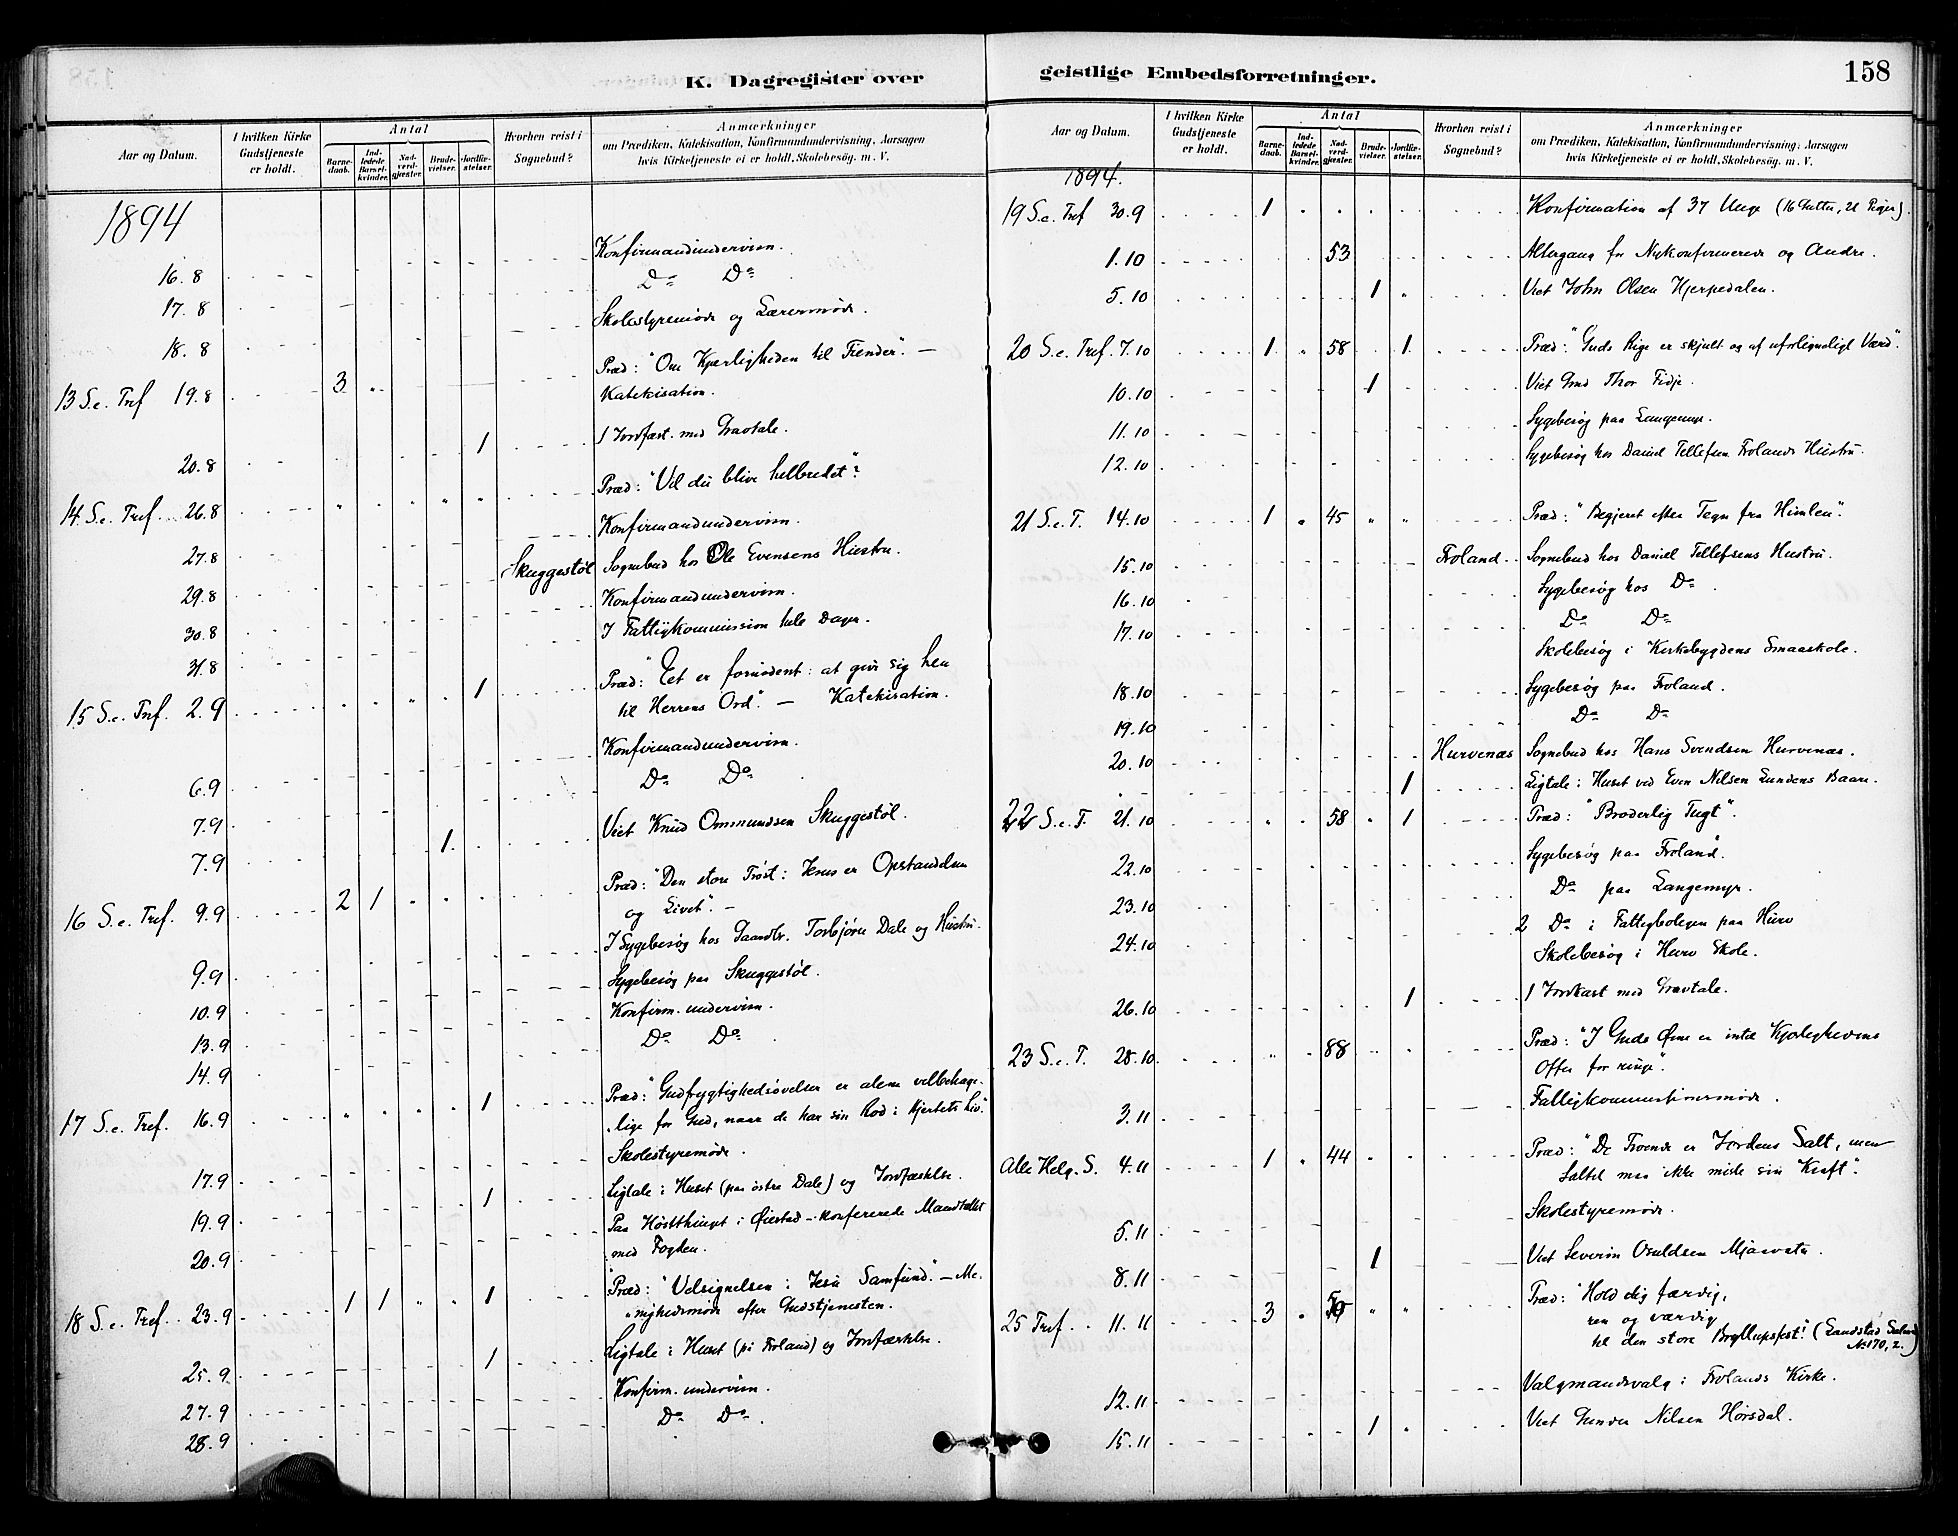 K. Dagregister over
Aar og Datum.
I hvilken Kirke Gudstjeneste er holdt.
Antal
Barnedaab.
Indledede Barselkvinder.
Nadverdgjæster.
Brudevielser.
Jordfæstelser.
Hvorhen reist i Sognebud?
Anmærkninger
om Prædiken, Katekisation, Konfirmandundervisning, Aarsagen
hvis Kirketjeneste ei er holdt, Skolebesøg. m. V.
1894
16.8 Konfirmandundervisn.
17.8 Do Do
18.8 Skolestyremøde og Lærermøde.
13 S.e. Tref 19.8 3 „ Præd: "Om Kjærligheden til Fiender". —
Katekisation.
20.8 1 1 Jordfæst. med Gravtale.
14 S.e. Tref. 26.8 „ „ „ „ „ Præd: "Vil du blive helbredet"?
27.8 Konfirmandundervisn.
29.8 Skuggestøl Sognebud hos Ole Evensens Hustru.
30.8 Konfirmandundervisn.
31.8 I Fattigkommission hele Dagen.
15 S.e. Tref. 2.9 „ „ „ „ 1 Præd: "Et er fornødent: at give sig hen
til Herrens Ord". — Katekisation.
6.9 Konfirmandundervisn.
7.9 Do Do
7.9 1 Viet Knud Ommundsen Skuggestøl.
16 S.e. Tref. 9.9 2 1 „ „ „ Præd: "Den store Trøst: Jesus er Opstandelsen
og Livet". —
9.9 I Sygebesøg hos Gaardbr. Torbjørn Dale og Hustru.
10.9 Sygebesøg paa Skuggestøl.
13.9 Konfirm. undervisn.
14.9 Do Do
17 S.e. Tref. 16.9 „ „ „ „ 1 Præd: "Gudfrygtighedsøvelser er alene velbehage-
lige for Gud, naar de har sin Rod i Hjertets Liv."
17.9 Skolestyremøde.
19.9 1 Ligtale i Huset (paa østre Dale) og Jordfæstelse.
20.9 Paa Høstthinget i Øiestad – konfererede Mandtallet
med Fogden.
18 S.e. Tref. 23.9 1 1 „ „ 1 Præd: "Velsignelsen i Jesu Samfund". — Me-
nighedsmøde efter Gudstjenesten.
25.9 1 Ligtale i Huset (på Froland) og Jordfæstelse.
27.9 Konfirm. undervisn.
28.9 Do Do
geistlige Embedsforretninger.
158
Aar og Datum.
I hvilken Kirke Gudstjeneste er holdt.
Antal
Barnedaab.
Indledede Barselkvinder.
Nadverdgjæster.
Brudevielser.
Jordfæstelser.
Hvorhen reist i Sognebud?
Anmærkninger
om Prædiken, Katekisation, Konfirmandundervisning, Aarsagen
hvis Kirketjeneste ei er holdt, Skolebesøg. m. V.
1894.
19 S.e. Tref 30.9 1 Konfirmation af 37 Unge (16 Gutter, 21 Piger).
1.10 53 Altergang for Nykonfirmerede og Andre.
5.10 1 „ Viet John Olsen Hjerpedalen.
20 S.e. Tref. 7.10 1 „ 58 1 Præd: "Guds Rige er skjult og af uforligneligt Værd".
10.10 1 Viet Gmd Thor Fidje.
11.10 Sygebesøg paa Langemyr.
12.10 Sygebesøg hos Daniel Tellefsen Frolands Hustru.
21 S.e. T. 14.10 1 „ 45 „ „ Præd: "Begjeret efter Tegn fra Himlen".
15.10 Froland Sognebud hos Daniel Tellefsens Hustru.
16.10 Sygebesøg hos Do
17.10 Do Do
Skolebesøg i Kirkebygdens Smaaskole.
18.10 Sygebesøg paa Froland.
19.10 Do Do
20.10 Hurvenæs Sognebud hos Hans Svendsen Hurvenæs.
„ 1 Ligtale i Huset ved Even Nilsen Lundens Baare.
22 S.e. T. 21.10 „ „ 58 „ 1 Præd: "Broderlig Tugt".
22.10 Sygebesøg paa Froland.
23.10 Do paa Langemyr.
24.10 2 Do i Fattigboligen paa Hurv
Skolebesøg i Hurv Skole.
26.10 1 1 Jordkast med Gravtale.
23 S.e. T. 28.10 „ „ 88 „ „ Præd: "I Guds Øine er intet Kjærlighedens
Offer for ringe".
3.11 Fattigkommissionsmøde.
Alle Helg. S. 4.11 1 „ 44 „ „ Præd: "De Troende er Jordens Salt, men
Saltet maa ikke miste sin Kraft".
5.11 Skolestyremøde.
8.11 1 Viet Severin Osuldsen Mjaavatn.
25 Tref. 11.11 3 „ „ „ Præd: "Hold dig færdig,
ren og værdig
til den store Bryllupsfest"! (Landstad Salme
No 170, 2.)
12.11 Valgmandsvalg i Frolands Kirke.
15.11 1 „ Viet Gunder Nilsen Hørsdal.